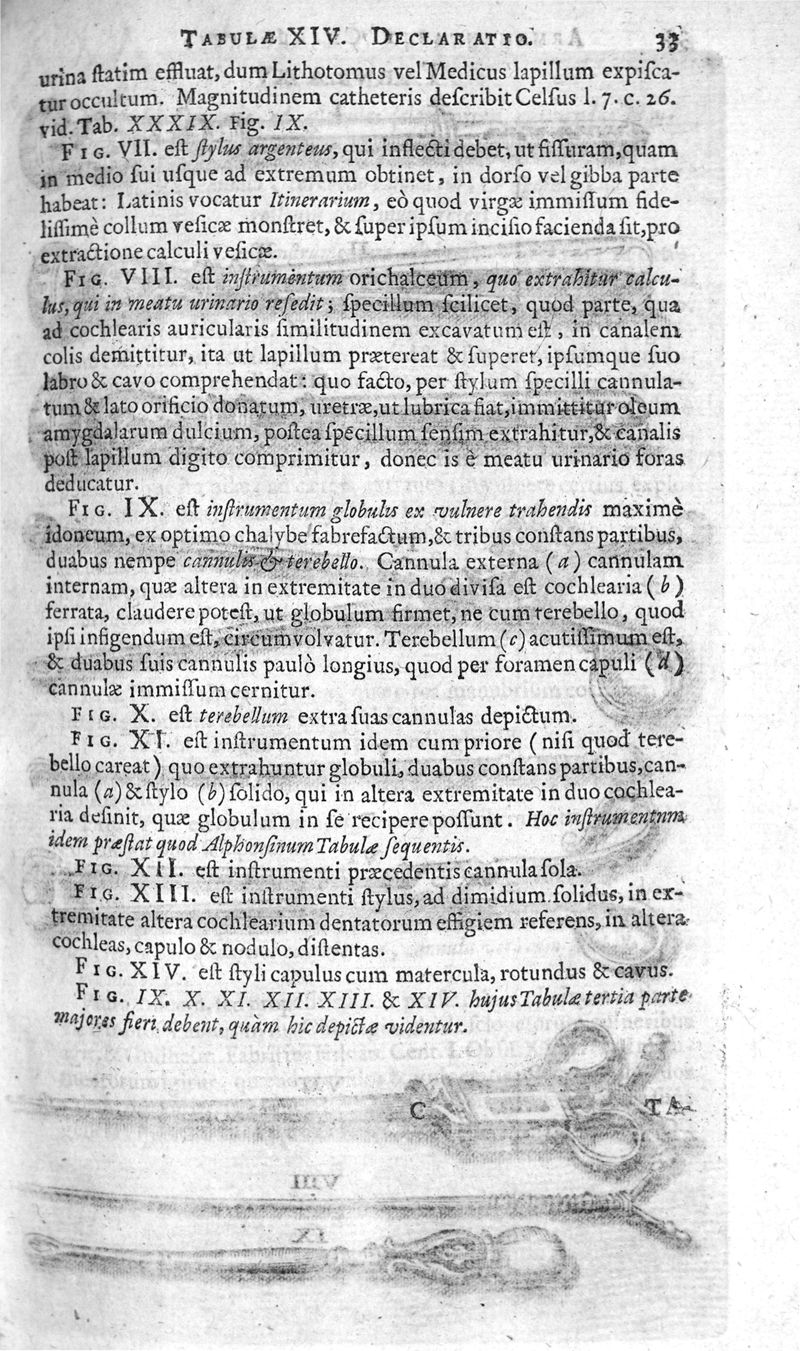 TABULÆ XIV. DECLARATIO. 33
urina ſtatim effluat, dum Lithotomus vel Medicus lapillum expiſca-
tur occultum. Magnitudinem catheteris deſcribit Celſus l. 7. c. 26.
vid. Tab. XXXIX. Fig. IX.
FIG. VII. eſt ſtylus argenteus, qui inflecti debet, ut fiſſuram, quam
in medio ſui uſque ad extremum obtinet, in dorſo vel gibba parte
habeat: Latinis vocatur Itinerarium, eò quod virgæ immiſſum fide-
liſſimè collum veſicæ monſtret, & ſuper ipſum inciſio facienda ſit, pro
extractione calculi veſicæ.
FIG. VIII. eſt inſtrumentum orichalceum, quo extrahitur calcu-
lus, qui in meatu urinario reſedit; ſpecillum ſcilicet, quod parte, qua
ad cochlearis auricularis ſimilitudinem excavatum eſt, in canalem
colis demittitur, ita ut lapillum prætereat & ſuperet, ipſumque ſuo
labro & cavo comprehendat: quo facto, per ſtylum ſpecilli cannula-
tum & lato orificio donatum, uretræ, ut lubrica fiat, immittitur oleum
amygdalarum dulcium, poſtea ſpecillum ſenſim extrahitur, & canalis
poſt lapillum digito comprimitur, donec is è meatu urinario foras
deducatur.
FIG. IX. eſt inſtrumentum globulis ex vulnere trahendis maximè
idoneum, ex optimo chalybe fabrefactum, & tribus conſtans partibus,
duabus nempe cannulis & terebello. Cannula externa (a) cannulam
internam, quæ altera in extremitate in duo diviſa eſt cochlearia (b)
ferrata, claudere poteſt, ut globulum firmet, ne cum terebello, quod
ipſi infigendum eſt, circumvolvatur. Terebellum (c) acutiſſimum eſt,
& duabus ſuis cannulis paulò longius, quod per foramen capuli (d)
cannulæ immiſſum cernitur.
FIG. X. eſt terebellum extra ſuas cannulas depictum.
FIG. XI. eſt inſtrumentum idem cum priore (niſi quod tere-
bello careat) quo extrahuntur globuli, duabus conſtans partibus, can-
nula (a) & ſtylo (b) ſolido, qui in altera extremitate in duo cochlea-
ria deſinit, quæ globulum in ſe recipere poſſunt. Hoc inſtrumentum
idem præſtat quod Alphonſinum Tabulæ ſequentis.
FIG. XII. eſt inſtrumenti præcedentis cannula ſola.
FIG. XIII. eſt inſtrumenti ſtylus, ad dimidium ſolidus, in ex-
tremitate altera cochlearium dentatorum effigiem referens, in altera
cochleas, capulo & nodulo, diſtentas.
FIG. XIV. eſt ſtyli capulus cum matercula, rotundus & cavus.
FIG. IX. X. XI. XII. XIII. & XIV. hujus Tabulæ tertia parte
majores fieri debent, quàm hic depictæ videntur.
C TA-
VIII
IX